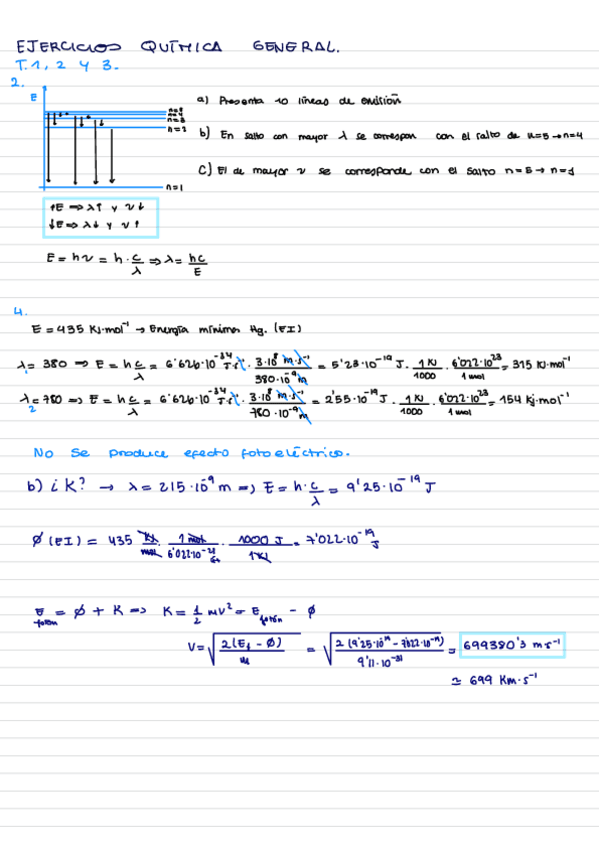 EJERCICIOS QUÍMICA GENERAL.
T.1, 2 y 3.
2.
E
n=5
n=4
n=3
n=2
n=1
a) Presenta 10 líneas de emisión
b) En salto con mayor λ se correspon con el salto de n=5→n=4
c) El de mayor ν se corresponde con el salto n=5→n=1
↑E ⇒ λ↑ y ν↓
↓E ⇒ λ↓ y ν↑
E = hν = h · c/λ ⇒ λ = hc/E
4.
E = 435 KJ·mol⁻¹ → Energía mínima Hg. (EI)
λ = 380 ⇒ E = h c/λ = 6'626·10⁻³⁴ J·s · 3·10⁸ m·s⁻¹/380·10⁻⁹ m = 5'23·10⁻¹⁹ J · 1 KJ/1000 · 6'022·10²³/1 mol = 315 KJ·mol⁻¹
λ₂ = 780 ⇒ E = h c/λ = 6'626·10⁻³⁴ J·s · 3·10⁸ m·s⁻¹/780·10⁻⁹ m = 2'55·10⁻¹⁹ J · 1 KJ/1000 · 6'022·10²³/1 mol = 154 KJ·mol⁻¹
No se produce efecto fotoeléctrico.
b) ¿K? → λ = 215·10⁻⁹ m ⇒ E = h·c/λ = 9'25·10⁻¹⁹ J
∅ (EI) = 435 KJ/mol · 1 mol/6'022·10⁻²³ · 1000 J/1 KJ = 7'022·10⁻¹⁹ J
E fotón = ∅ + K ⇒ K = 1/2 mv² = E fotón - ∅
V = √(2(E_f - ∅)/m) = √(2(9'25·10⁻¹⁹ - 7'022·10⁻¹⁹)/9'11·10⁻³¹) = 699380'3 m s⁻¹
≃ 699 Km·s⁻¹